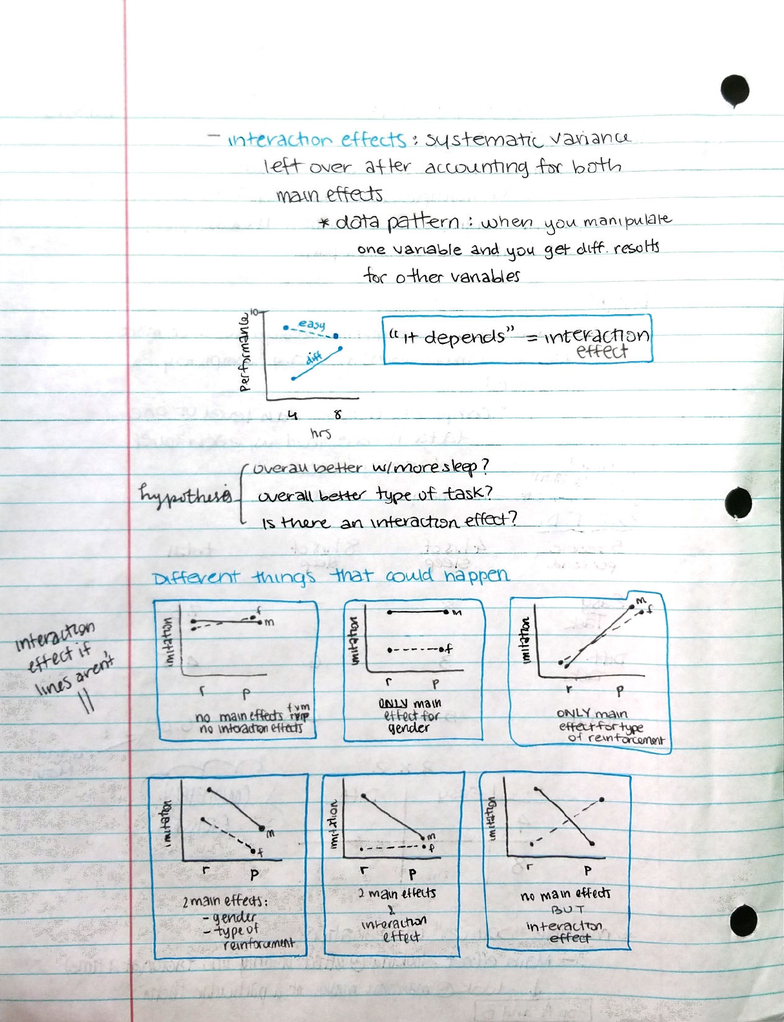 - interaction effects : systematic variance
left over after accounting for both
main effects
* data pattern : when you manipulate
one variable and you get diff. results
for other variables
10
Performance
easy
diff
4 8
hrs
"it depends" = interaction
effect
hypothesis
overall better w/more sleep?
overall better type of task?
Is there an interaction effect?
Different things that could happen
interaction
effect if
lines aren't
||
imitation
f
m
r p
no main effects f v m
r v p
no interaction effects
imitation
m
f
r p
ONLY main
effect for
gender
imitation
m
f
r p
ONLY main
effect for type
of reinforcement
imitation
m
f
r p
2 main effects:
- gender
- type of
reinforcement
imitation
m
f
r p
2 main effects
&
interaction
effect
imitation
r p
no main effects
BUT
interaction
effect